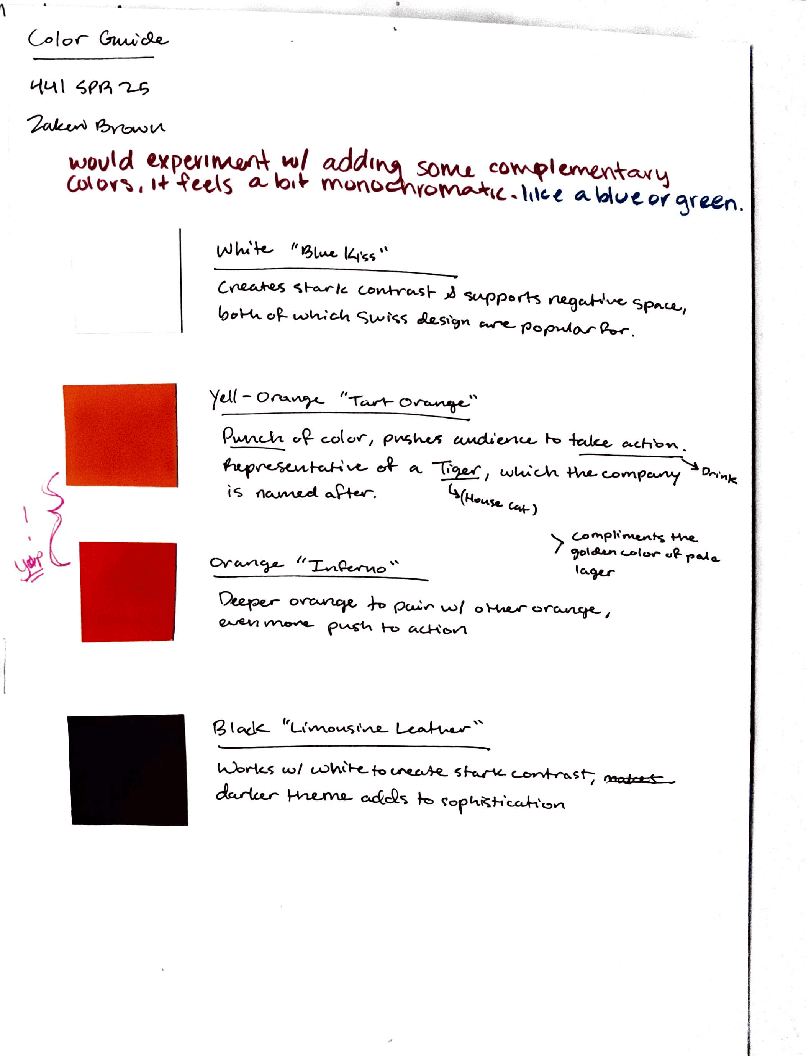 Color Guide
441 SPR 25
Zaken Brown
would experiment w/ adding some complementary
colors, it feels a bit monochromatic. like a blue or green.
White "Blue Kiss"
Creates stark contrast & supports negative space,
both of which Swiss design are popular for.
Yell-Orange "Tart Orange"
Punch of color, pushes audience to take action.
Drink
Representative of a Tiger, which the company
is named after.
(House Cat)
compliments the
golden color of pale
lager
yep!
Orange "Inferno"
Deeper orange to pair w/ other orange,
even more push to action
Black "Limousine Leather"
Works w/ white to create stark contrast, makes
darker theme adds to sophistication